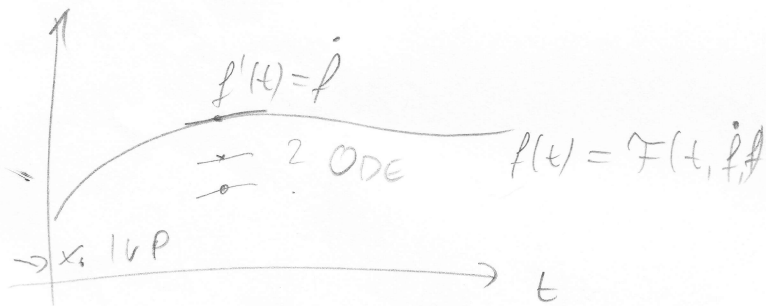 f'(t) = ḟ
? ODE
f(t) = F(t, ḟ, f)
x₀ IVP
t